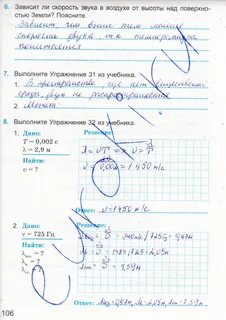 6. Зависит ли скорость звука в воздухе от высоты над поверхно-
стью Земли? Поясните.
Зависит, чем выше тем меньше
скорость звука, т.к температура
понижается
7. Выполните Упражнение 31 из учебника.
1. В пространстве, где нет вещественной
среды, звук не распространяется
2. Может
8. Выполните Упражнение 32 из учебника.
1. Дано:
T = 0,002 с
λ = 2,9 м
Найти:
υ = ?
Решение:
λ = υT => υ = λ/T
υ = 2,9/0,002 = 1450 м/с
Ответ: υ = 1450 м/с
2. Дано:
ν = 725 Гц
Найти:
Решение:
λвоз = υ/ν = 340м/с / 725Гц = 0,47м
λв = υ/ν = 1485/725 = 2,05м
λст = υ/ν = 7,59м
Ответ: λвоз=0,47м, λв=2,05м, λст=7,59м
106